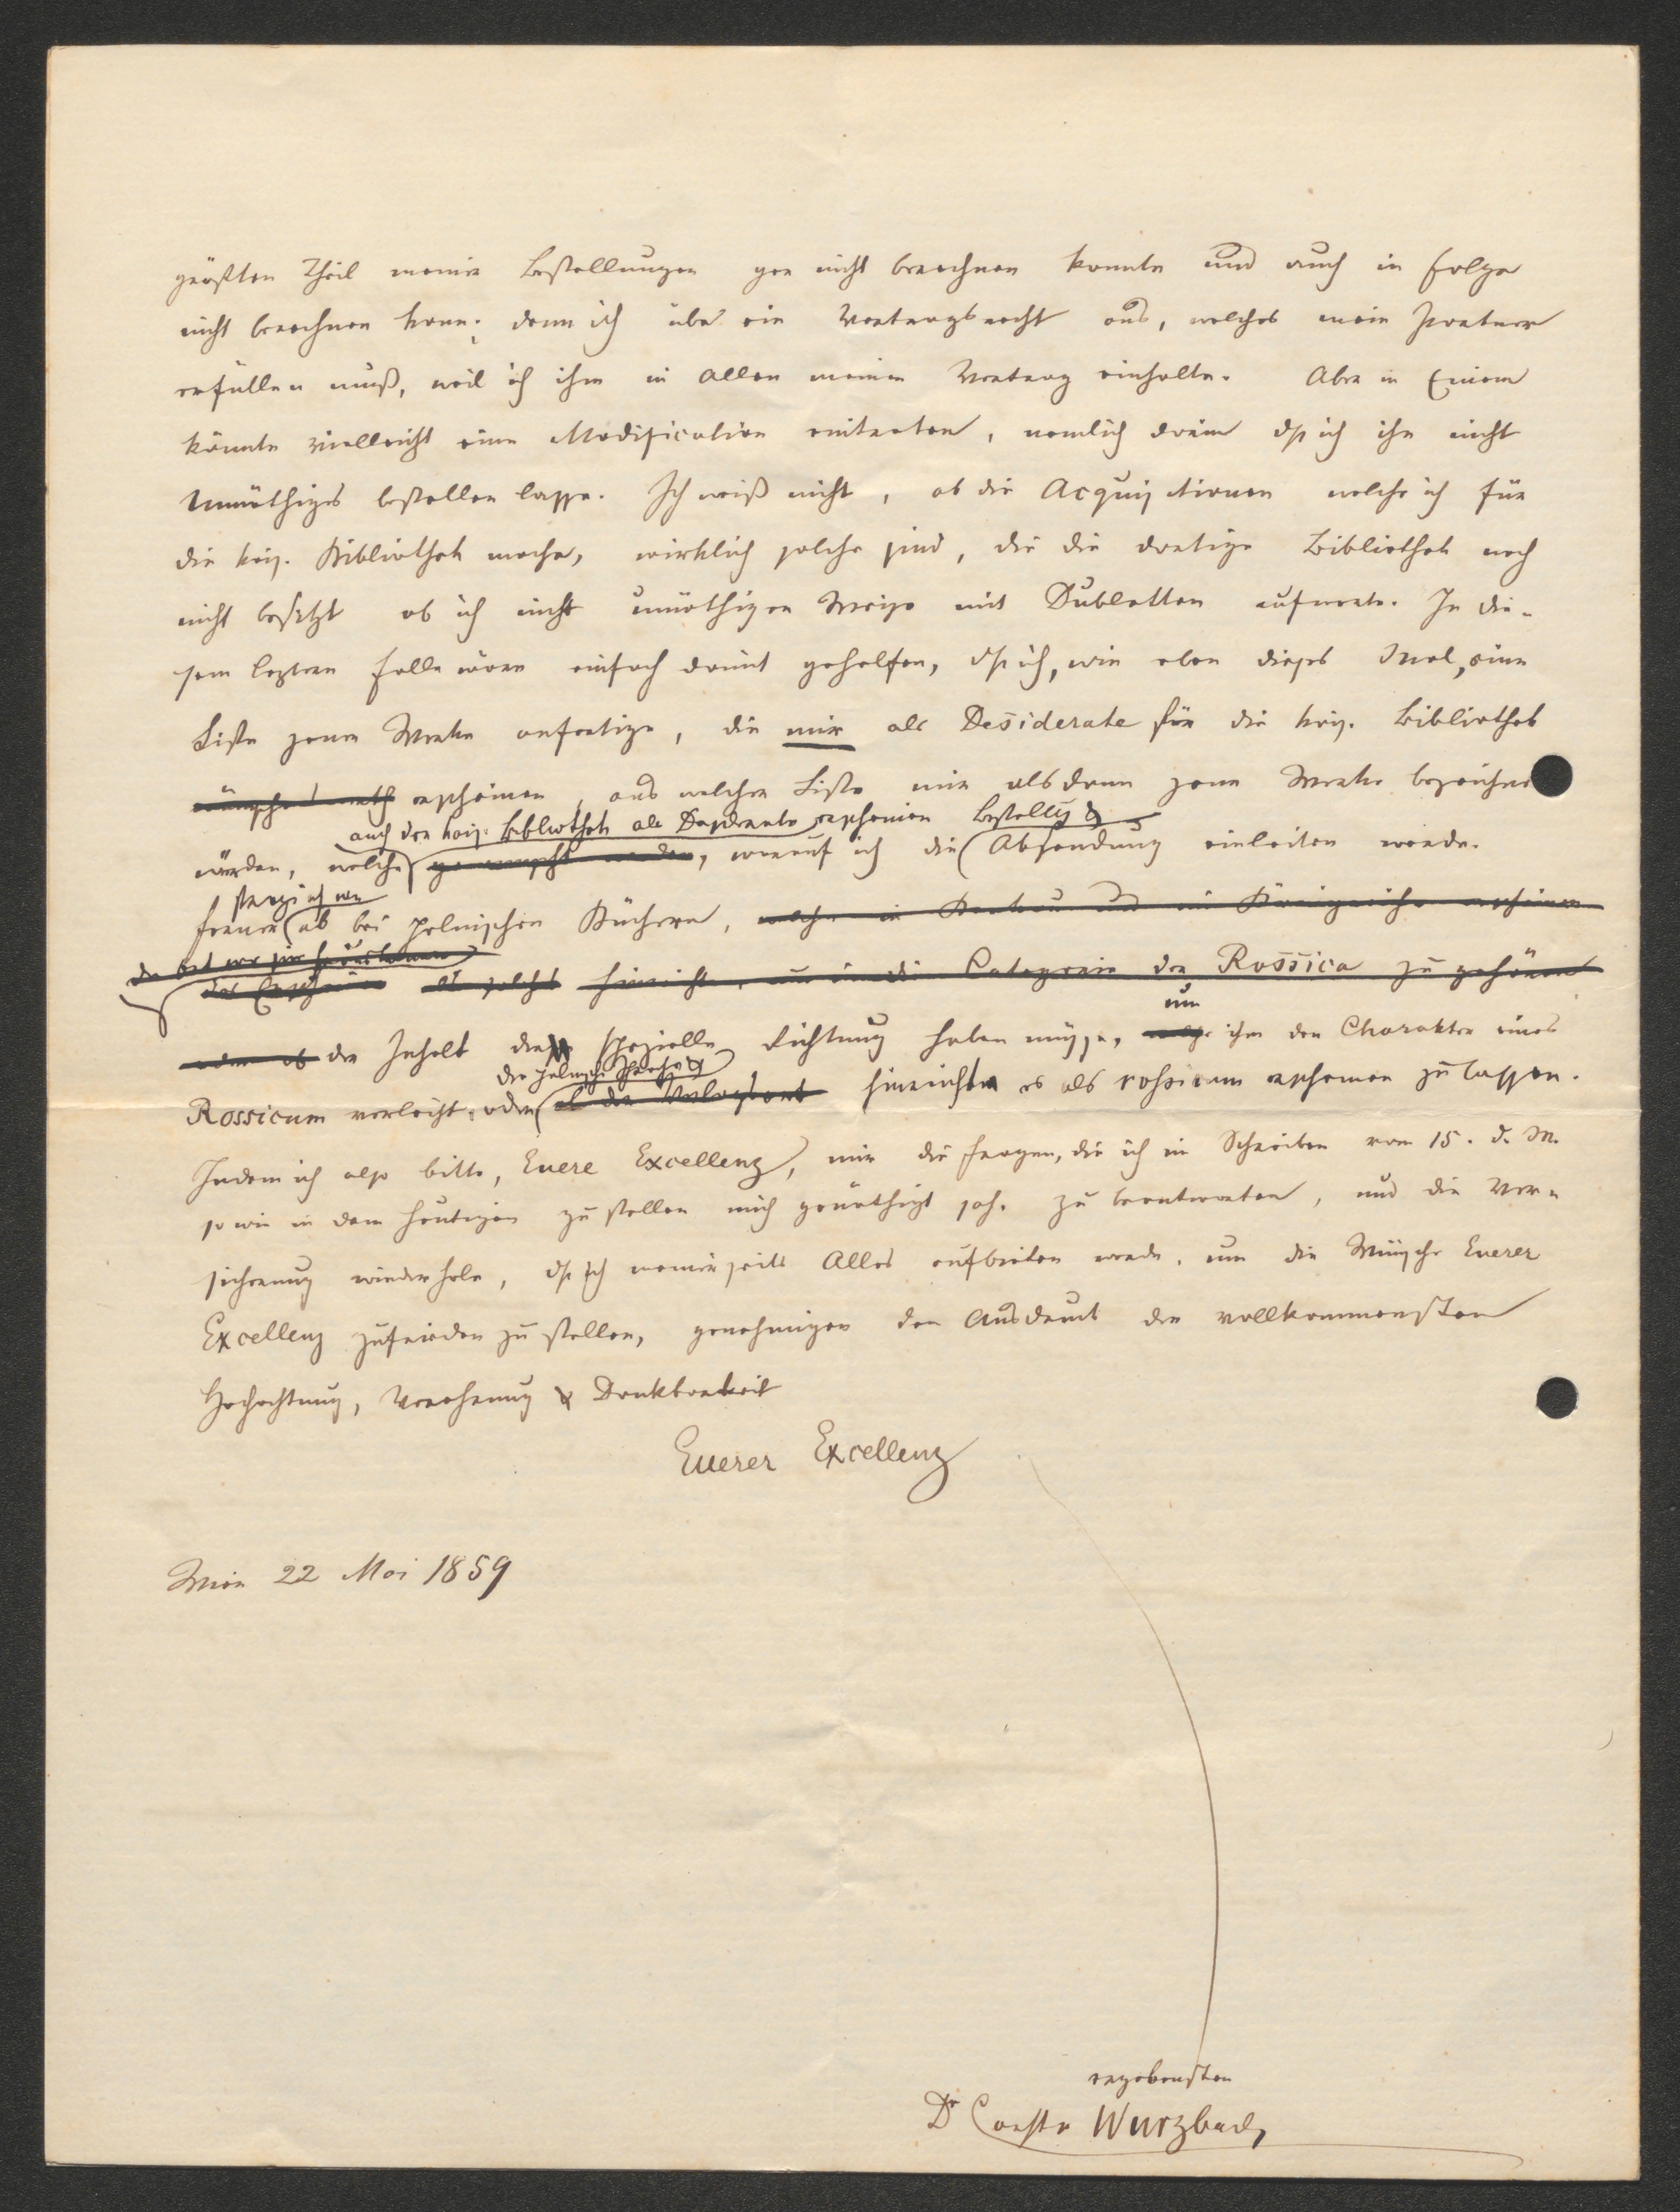 größten Theil meiner Bestellungen gar nicht berechnen konnte und auch in Folge
nicht berechnen kann; denn ich übe ein Vertragsrecht aus, welches mein Partner
erfüllen muß, weil ich ihm in Allen meinen Vertrag einhalte. Aber in Einem
könnte vielleicht eine Modification eintreten, nemlich darin dß ich ihn nicht
Unnöthiges bestellen lasse. Ich weiß nicht, ob die Acquisitionen welche ich für
die kais. Bibliothek mache, wirklich solche sind, die die dortige Bibliothek noch
nicht besitzt ob ich nicht unnöthiger Weise mit Dubletten aufwarte. In die-
sem leztren Falle wäre einfach damit geholfen, dß ich, wie eben dieses Mal, eine
Liste jener Werke anfertige, die mir als Desiderate für die kais. Bibliothek
wünschenswerth erscheinen, aus welcher Liste mir alsdann jene Werke bezeichnet
auch der kais. Bibliothek als Desiderate erscheinen Bestellg &
würden, welche gewünscht werden, worauf ich die Absendung einleiten werde.
Ferner ob bei polnischen Büchern, welche in Krakau und im Königreiche erscheinen
das Erscheinen als solches hinreicht, um in die Categorie der Rossica zu gehören
oder ob der Inhalt diese spezielle Richtung haben müsse, um ihm den Charakter eines
die polnische Sprache
Rossicum verleiht, oder ob der Verlagsort hinreicht es als rossicum erscheinen zu lassen.
Indem ich also bitte, Euere Excellenz, mir die Fragen, die ich im Schreiben vom 15. d. M.
so wie in dem heutigen zu stellen mich genöthigt sah, zu beantworten, und die Ver-
sicherung wiederhole, dß ich meinerseits Alles aufbieten werde, um die Wünsche Euerer
Excellenz zufrieden zu stellen, genehmigen den Ausdruck der vollkommensten
Hochachtung, Verehrung & Dankbarkeit
Euerer Excellenz
Wien 22 Mai 1859
ergebensten
Dr Const v Wurzbach